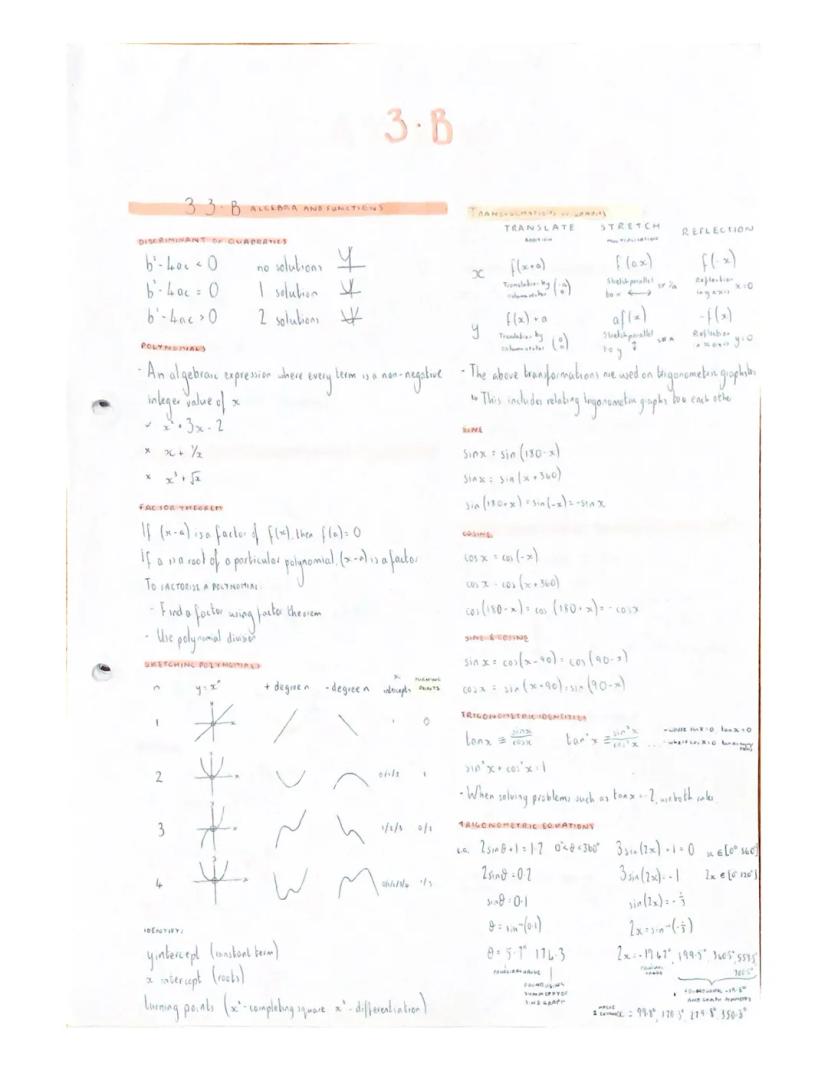 3.B
3 3.B ALGEBRA AND FUNCTIONS
DISCRIMINANT OF QUADRATICS
b²-4ac < 0 no solutions
b²-4ac = 0 1 solution
b²-4ac > 0 2 solutions
POLYNOMIALS
- An algebraic expression where every term is a non-negative
integer value of x
✓ x²+3x-2
× x+1/x
× x³+√x
FACTOR THEOREM
If (x-a) is a factor of f(x), then f(a)=0
If a is a root of a particular polynomial, (x-a) is a factor
TO FACTORISE A POLYNOMIAL:
- Find a factor using factor theorem
- Use polynomial division
SKETCHING POLYNOMIALS
n y=xⁿ +degree n -degree n x intercepts TURNING POINTS
1 1 0
2 0/1/2 1
3 1/2/3 0/2
4 0/1/2/3/4 1/3
IDENTIFY:
y intercept (constant term)
x intercept (roots)
turning points (x²-completing square x³-differentiation)
TRANSFORMATIONS OF GRAPHS
TRANSLATE STRETCH REFLECTION
ADDITION MULTIPLICATION
x f(x+a) f(ax) f(-x)
Translation by column vector (-a 0) Stretch parallel to x sf 1/a Reflection in y axis x=0
y f(x)+a af(x) -f(x)
Translation by column vector (0 a) Stretch parallel to y sf a Reflection in x axis y=0
- The above transformations are used on trigonometric graphs too
↳ This includes relating trigonometric graphs to each other
SINE
sin x = sin(180-x)
sin x = sin(x+360)
sin(180+x) = sin(-x) = -sin x
COSINE
cos x = cos(-x)
cos x = cos(x+360)
cos(180-x) = cos(180+x) = -cos x
SINE & COSINE
sin x = cos(x-90) = cos(90-x)
cos x = sin(x+90) = sin(90-x)
TRIGONOMETRIC IDENTITIES
tan x ≡ sin x/cos x tan²x ≡ sin²x/cos²x ... - where sin x=0, tan x=0
- where cos x=0
sin²x+cos²x=1
- When solving problems such as tan x=-2, use both rules
TRIGONOMETRIC EQUATIONS
e.g. 2sinθ+1=1.2 0°<θ<360° 3sin(2x)+1=0 x∈[0° 360°]
2sinθ=0.2 3sin(2x)=-1 2x∈[0° 720°]
sinθ=0.1 sin(2x)=-1/3
θ=sin⁻¹(0.1) 2x=sin⁻¹(-1/3)
θ=5.7° 174.3 2x=-19.47°, 199.5°, 340.5°, 559.5°, 700.5°
PRINCIPAL RANGE PRINCIPAL RANGE
FOUND USING SYMMETRY OF SINE GRAPH
AND GRAPH SYMMETRY
x = 99.8°, 170.3°, 279.8°, 350.3°